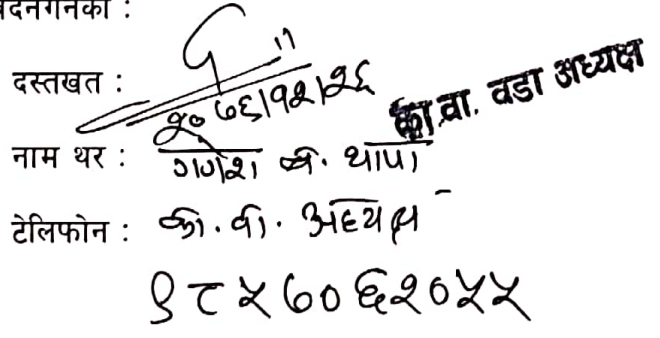 वदनगनको :
दस्तखत :
२०७६।१२।२६
का.वा. वडा अध्यक्ष
नाम थर : गणेश थापा
टेलिफोन : का. वा. अध्यक्ष
९८५७०६२०५५